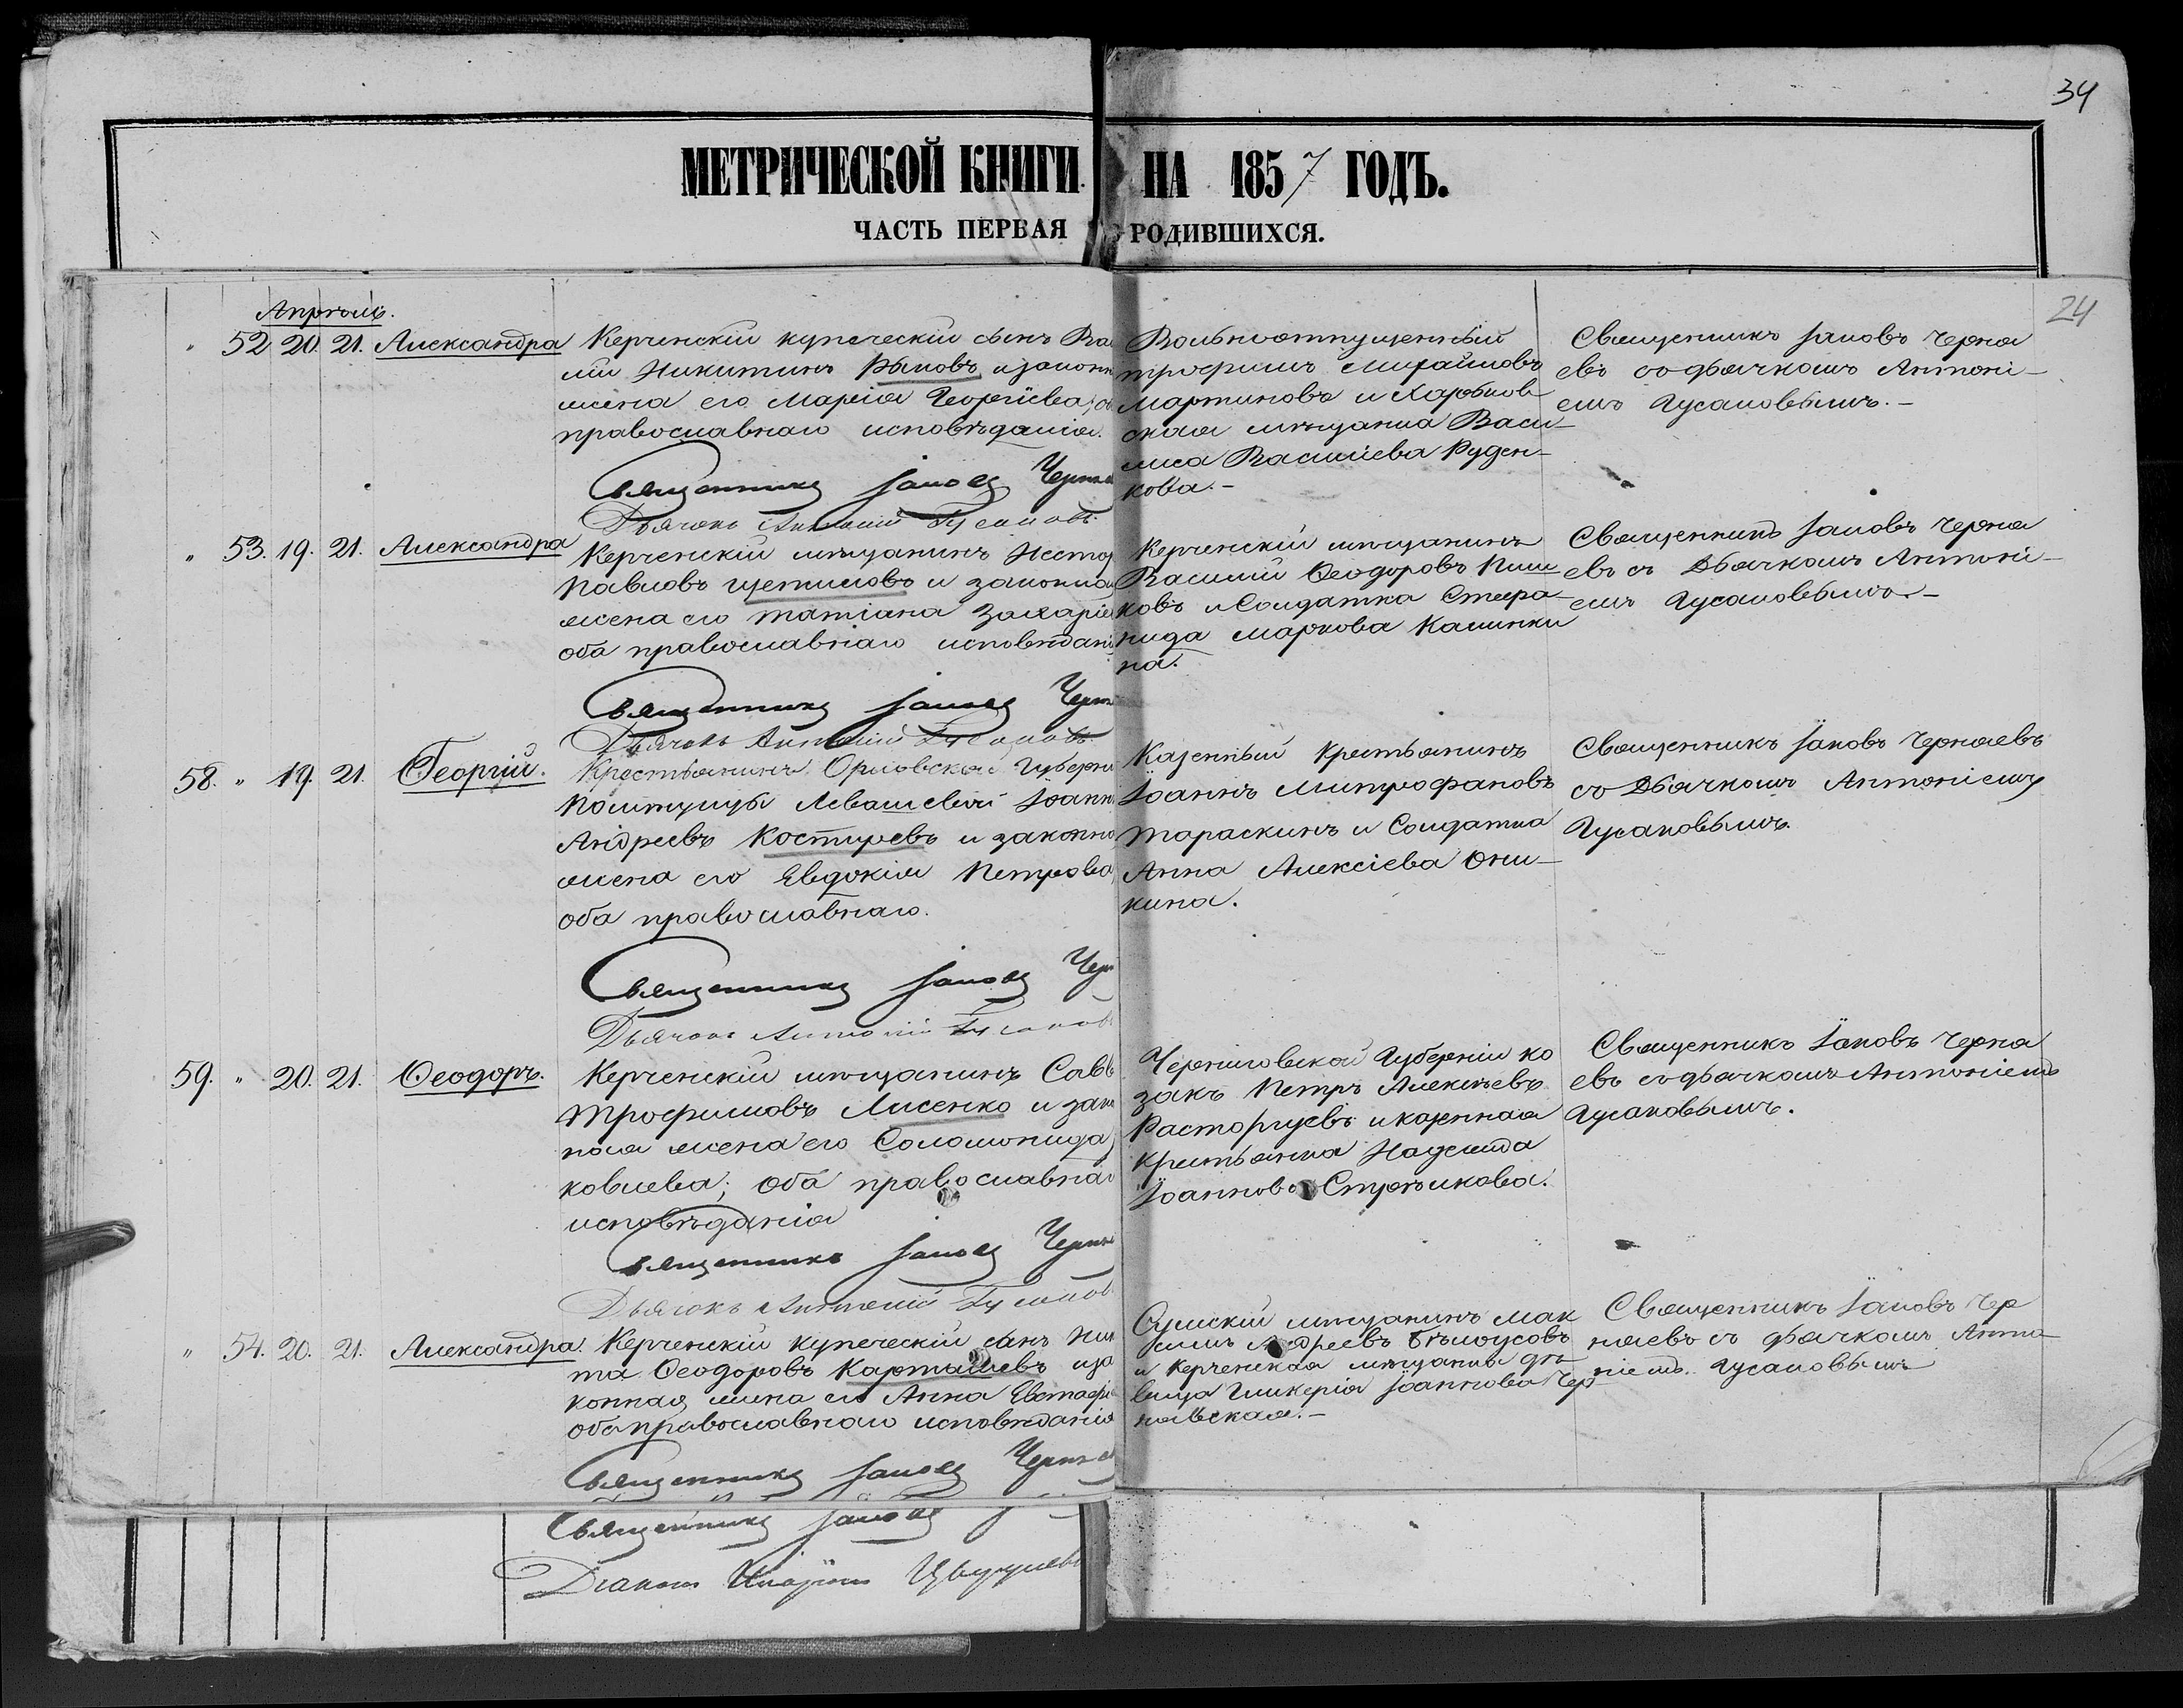 34
МЕТРИЧЕСКОЙ КНИГИ НА 1857 ГОДЪ.
ЧАСТЬ ПЕРВАЯ РОДИВШИХСЯ.
24
Апрѣль.
" 52 20. 21. Александра
Керченскій купеческій сынъ Ва
лій Никитинъ Рыковъ и законн
жена его Марія Георгіева, о
православнаго исповѣданія.
Священникъ Іаковъ Черня
Дьячокъ Антоній Гусаковъ.
Вольноотпущенный
Трофимъ Михайловъ
Мартиновъ и Харьков
ская мѣщанка Васи-
лиса Василіева Руден-
кова.-
Священникъ Іаковъ Черня
евъ со дьячкомъ Антоні-
емъ Гусаковымъ.-
" 53. 19. 21. Александра
Керченскій мѣщанинъ Несто
Павловъ Щетиловъ и законна
жена его Татіана Захарі
оба православнаго исповѣдані
Священникъ Іаковъ Черн
Дьячокъ Антоній Гусаковъ.
Керченскій мѣщанинъ
Василій Ѳеодоровъ
ковъ и Солдатка Стефа-
нида Маркова Калинки
на.
Священникъ Іаковъ Черня
евъ съ Дьячкомъ Антоні-
емъ Гусаковымъ.-
58. " 19. 21. Георгій.
Крестьянинъ Орловской Губерні
Помѣщицы Левашевой Іоанн
Андреевъ Костыревъ и законно
жена его Евдокія Петрова,
оба православнаго.
Священникъ Іаковъ Чер
Дьячокъ Антоній Гусаковъ
Казенный Крестьянинъ
Іоаннъ Митрофановъ
Тараскинъ и Солдатка
Анна Алексіева Они-
кина.
Священникъ Іаковъ Черняевъ
со Дьячкомъ Антоніемъ
Гусаковымъ.
59. " 20. 21. Ѳеодоръ.
Керченскій мѣщанинъ Савв
Трофимовъ Лисенко и зако
ная жена его Соломонида
ковлева; оба православнаг
исповѣданія
Священникъ Іаковъ Черня
Дьячокъ Антоній Гусаков
Черниговской Губерніи ко
закъ Петръ Алексѣевъ
Расторгуевъ и казенная
крестьянка Надежда
Іоаннова Стрѣлкова.
Священникъ Іаковъ Черня
евъ со дьячкомъ Антоніемъ
Гусаковымъ.
" 54. 20. 21. Александра.
Керченскій купеческій сынъ Ник
та Ѳеодоровъ Карташевъ и за
конная жена его Анна Евстафі
оба православнаго исповѣданія
Священникъ Іаковъ Черняе
Сумскій мѣщанинъ Мак
симъ Андреевъ Бѣлоусовъ
и Керченская мѣщанка дѣ-
вица Гликерія Іоаннова Чер
нявская.-
Священникъ Іаковъ Чер
няевъ съ дьячкомъ Анто-
ніемъ Гусаковымъ
Священникъ Іаковъ
Діаконъ